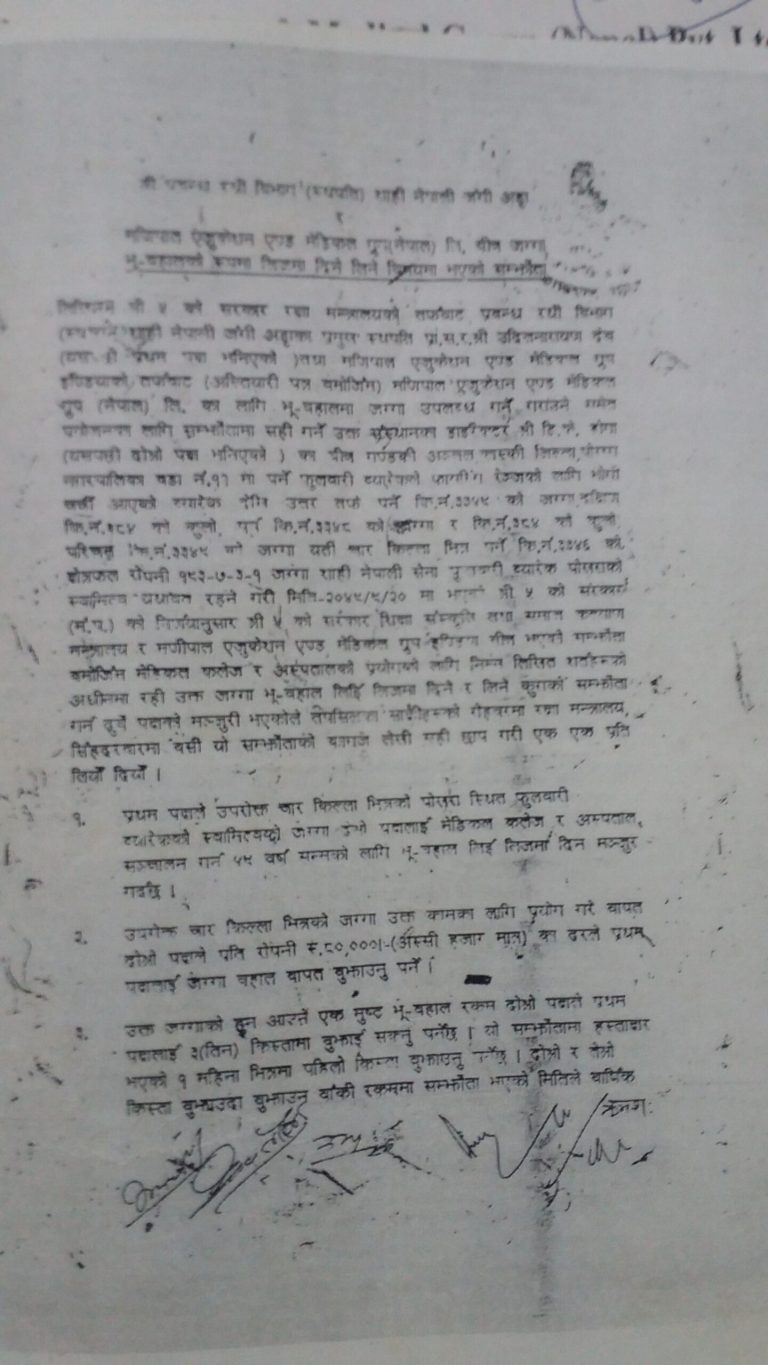 श्री प्रबन्ध रथी विभाग (स्थपति) शाही नेपाली जंगी अड्डा
र
मणिपाल एजुकेशन एण्ड मेडिकल ग्रुप(नेपाल) लि. बीच जग्गा
भू-बहालको रुपमा लिजमा दिने लिने विषयमा भएको सम्झौता
लिखितम श्री ५ को सरकार रक्षा मन्त्रालयको तर्फबाट प्रबन्ध रथी विभाग
शाही नेपाली जंगी अड्डाका प्रमुख स्थपति प्रा.स.र.श्री उदितनारायण देव
(यस प्रथम पक्ष भनिएको )तथा मणिपाल एजुकेशन एण्ड मेडिकल ग्रुप
इण्डियाको तर्फबाट (अख्तियारी पत्र बमोजिम) मणिपाल एजुकेशन एण्ड मेडिकल
ग्रुप (नेपाल) लि. का लागि भू-बहालमा जग्गा उपलब्ध गर्ने गराउने समेत
प्रयोजनका लागि सम्झौतामा सही गर्ने उक्त संस्थानका डाइरेक्टर श्री
(यसपछी दोश्रो पक्ष भनिएको ) का बीच गण्डकी अञ्चल कास्की जिल्ला,पोखरा
वडा नं.११ मा पर्ने फुलबारी ब्यारेकको फायरिंग रेञ्जको लागि भोगी
चर्ची आएको ब्यारेक देखि उत्तर तर्फ पर्ने कि.नं.३३४५ को जग्गा,दक्षिण
कि.नं.३८४ को कुलो, पूर्व कि.नं.३३४८ को जग्गा र कि.नं.३८४ को कुलो,
पश्चिम कि.नं.३३४५ को जग्गा यती चार किल्ला भित्र पर्ने कि.नं.३३४६ को
क्षेत्रफल रोपनी १८३-७-३-१ जग्गा शाही नेपाली सेना फुलबारी ब्यारेक पोखराको
स्वामित्व यथावत रहने गरी मिति-२०४९/९/२० मा भएको श्री ५ को सरकार
(मं.प.) को निर्णयानुसार श्री ५ को सरकार शिक्षा संस्कृति तथा समाज कल्याण
मन्त्रालय र मणीपाल एजुकेशन एण्ड मेडिकल ग्रुप इण्डिया बीच भएको सम्झौता
बमोजिम मेडिकल कलेज र अस्पतालको प्रयोगको लागि निम्न लिखित शर्तहरुको
अधीनमा रही उक्त जग्गा भू-बहाल लिई लिजमा दिने र लिने कुराको सम्झौता
गर्न दुवै पक्षको मञ्जुरी भएकोले तपसिलका साक्षीहरुको रोहवरमा रक्षा मन्त्रालय,
सिंहदरबारमा बसी यो सम्झौताको कागज लेखी सही छाप गरी एक एक प्रति
लियौँ दियौँ ।
१. प्रथम पक्षले उपरोक्त चार किल्ला भित्रको पोखरा स्थित फुलबारी
ब्यारेकको स्वामित्वको जग्गा दोश्रो पक्षलाई मेडिकल कलेज र अस्पताल,
सञ्चालन गर्न ५५ वर्ष सम्मको लागि भू-बहाल लिई लिजमा दिन मञ्जुर
गर्दछ ।
२. उपरोक्त चार किल्ला भित्रको जग्गा उक्त कामका लागि प्रयोग गरे वापत
दोश्रो पक्षले प्रति रोपनी रु.८०,०००।-(अस्सी हजार मात्र) का दरले प्रथम
पक्षलाई जग्गा बहाल वापत बुझाउनु पर्ने ।
३. उक्त जग्गाको हुन आउने एक मुष्ट भू-बहाल रकम दोश्रो पक्षले प्रथम
पक्षलाई ३(तिन) किस्तामा बुझाई सक्नु पर्नेछ । यो सम्झौतामा हस्ताक्षर
भएको १ महिना भित्रमा पहिलो किस्ता बुझाउनु पर्नेछ । दोश्रो र तेश्रो
किस्ता बुझाउदा बुझाउन बाँकी रकममा सम्झौता भएको मितिले वार्षिक